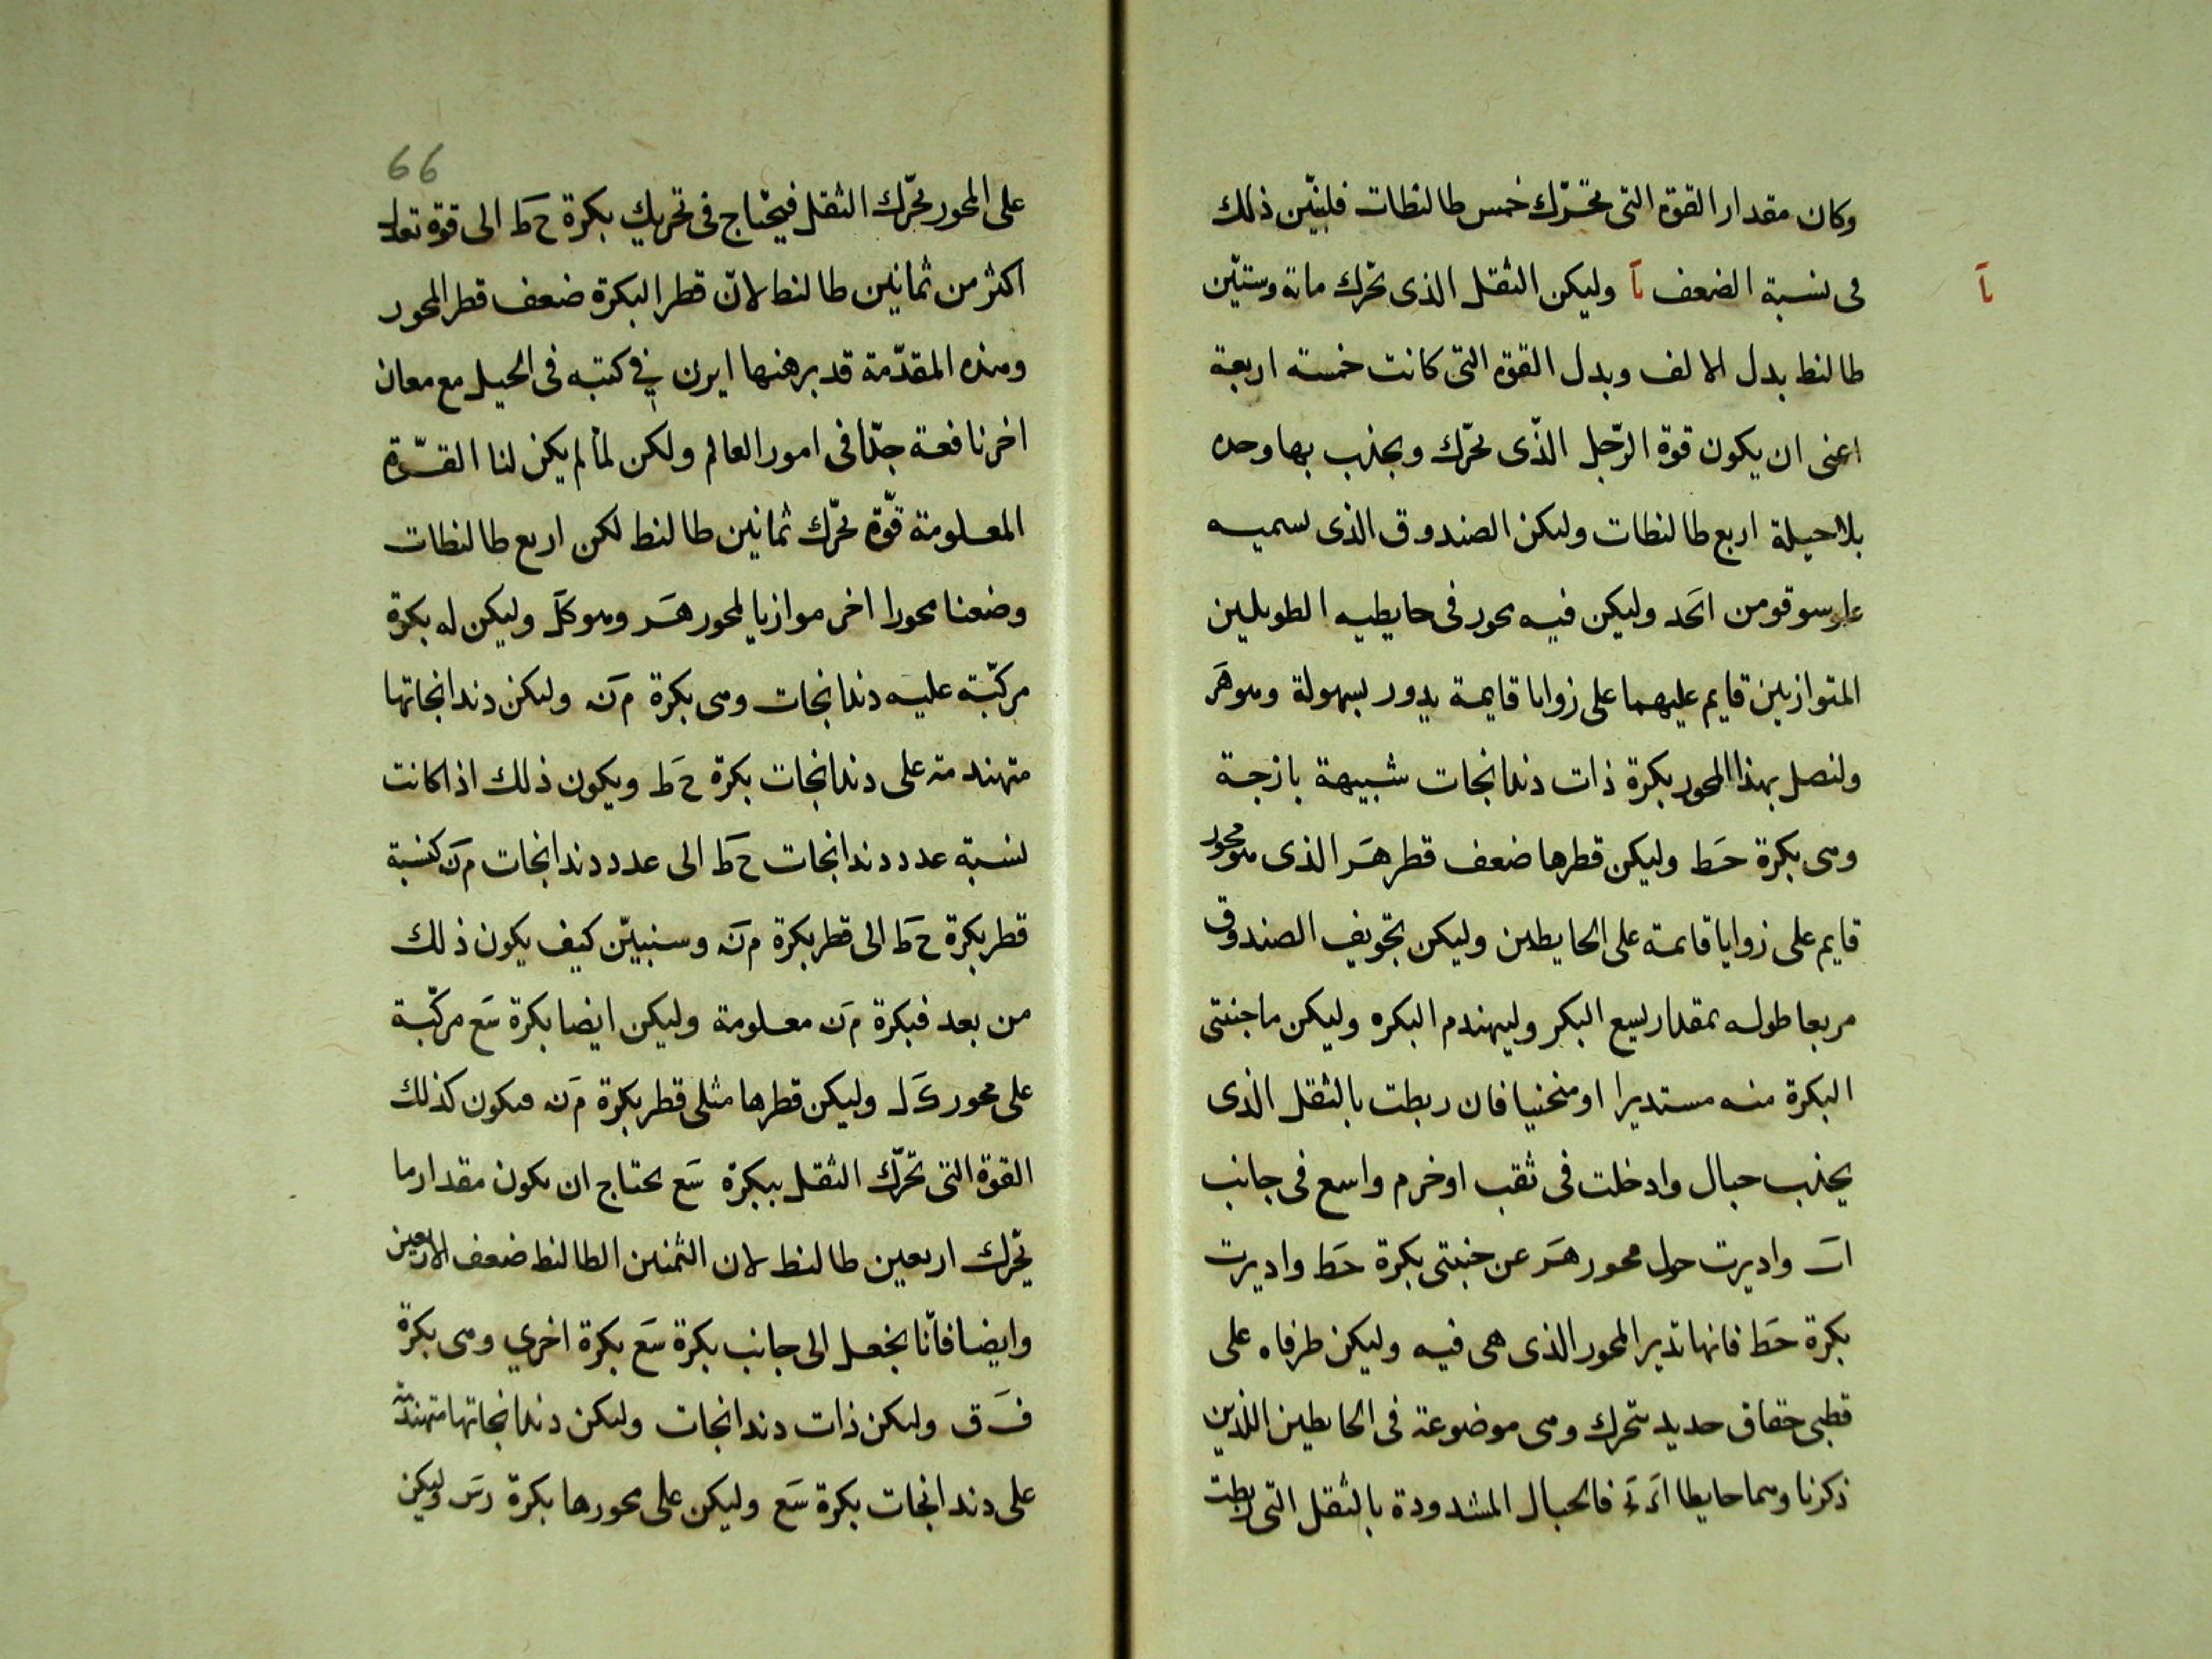 وكان مقدار القوة التى تحرّك خمس طالنطات فلنبيّن ذلك
فى نسبة الضعف يآ وليكن الثقل الذى تحرك مائة وستّين يآ
طالنط بدل الالف وبدل القوة التى كانت خمسة اربعة
اعنى ان يكون قوة الرّجل الذّى تحرّك ويجذب بها وحده
بلاحيلة اربع طالنطات وليكن الصندوق الذى نسميه
علوسوقومن ابَحد وليكن فيه محور فى حايطيه الطويلين
المتوازيين قايم عليهما على زوايا قايمة يدور بسهولة وهو هَز
ولنصل بهذا المحور بكرة ذات دندانجات شبيهة بازجة
وهى بكرة حَط وليكن قطرها ضعف قطر هَز الذى هو محور
قايم على زوايا قايمة على الحايطين وليكن تجويف الصندوق
مربعا طوله بمقدار يسع البكر وليهندم البكره وليكن ما جنبتى
البكرة منه مستديرا او منحنيا فان ربطت بالثقل الذى
يجذب حبال وادخلت فى ثقب او خرم واسع فى جانب
ابَ واديرت حول محور هَز عن جنبتى بكرة حَط واديرت
بكرة حَط فانها تدير المحور الذى هى فيه وليكن طرفاه على
قطبى حقاق حديد تتحرك وهى موضوعة فى الحايطين اللذين
ذكرنا وهما حايطا فالحبال المشدودة بالثقل التى ربطت
66
على المحور تحرّك الثقل فيحتاج فى تحريك بكرة حَط الى قوة تعدل
اكثر من ثمانين طالنط لانّ قطر البكرة ضعف قطر المحور
وهذه المقدّمة قد برهنها ايرن فى كتبه فى الحيل مع معان
اخر نافعة جدّا فى امور العالم ولكن لمّا لم يكن لنا القوّة
المعلومة قوّة تحرّك ثمانين طالنط لكن اربع طالنطات
وضعنا محورا اخر موازيا لمحور هَز وهو كَل وليكن له بكرة
مركّبة عليه دندانجات وهى بكرة مَن وليكن دندانجاتها
متهندمة على دندانجات بكرة حَط ويكون ذلك اذا كانت
نسبة عدد دندانجات حَط الى عدد دندانجات مَن كنسبة
قطر بكرة حَط الى قطر بكرة مَن وسنبيّن كيف يكون ذلك
من بعد فبكرة مَن معلومة وليكن ايضا بكرة سَع مركّبة
على محور كَل وليكن قطرها مثلى قطر بكرة مَن فيكون كذلك
القوة التى تحرّك الثقل ببكرة سَع يحتاج ان يكون مقدار ما
يحّرك اربعين طالنط لان الثمنين الطالنط ضعف الاربعين
وايضا فأنّا نجعل الى جانب بكرة سَع بكرة اخري وهى بكرة
فَق وليكن ذات دندانجات وليكن دندانجاتها متهندمة
على دندانجات بكرة سَع وليكن على محورها بكرة رَس وليكن